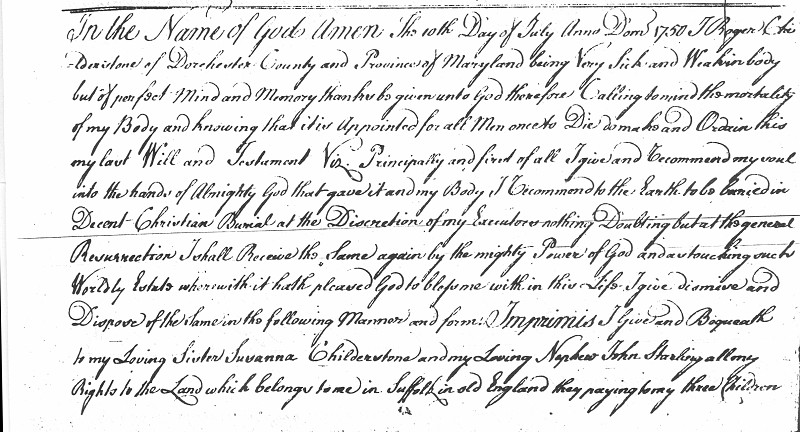 In the Name of God Amen The 10th Day of July Anno Dom 1750 I Roger Chi
-lderstone of Dorchester County and Province of Maryland being Very Sick and Weak in body
but of perfect Mind and Memory thanks be given unto God therefore Calling to mind the mortality
of my Body and knowing that it is Appointed for all Men once to Die do make and Ordain this
my last Will and Testament Viz. Principally and first of all I give and Recommend my soul
into the hands of Almighty God that gave it and my Body I Recommend to the Earth to be buried in
Decent Christian Burial at the Discretion of my Executors nothing Doubting but at the general
Resurrection I shall Receive the Same again by the mighty Power of God and as touching such
Worldly Estate wherewith it hath pleased God to bless me with in this Life I give dismise and
Dispose of the Same in the following Manner and form: Imprimis I Give and Bequeath
to my Loving Sister Susanna Childerstone and my Loving Nephew John Starling all my
Rights to the Land which belongs to me in Suffolk in old England they paying to my three Children